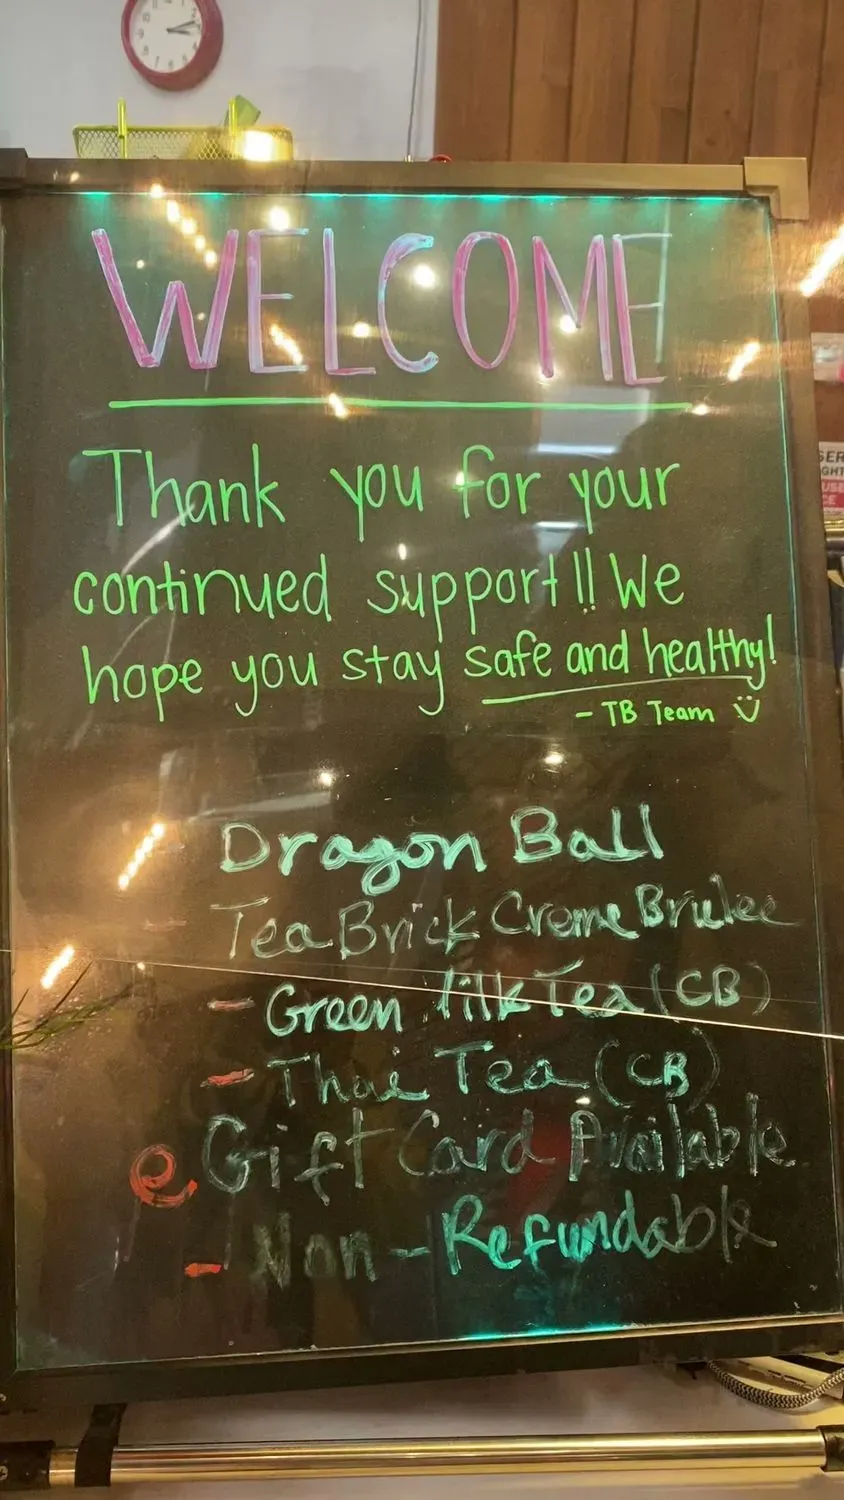 WELCOME
Thank you for your
continued support!! We
hope you stay safe and healthy!
- TB Team
Dragon Ball
Tea Brick Creme Brulee
- Green Milk Tea (CB)
- Thai Tea (CB)
e Gift Card Available
- Non-Refundable